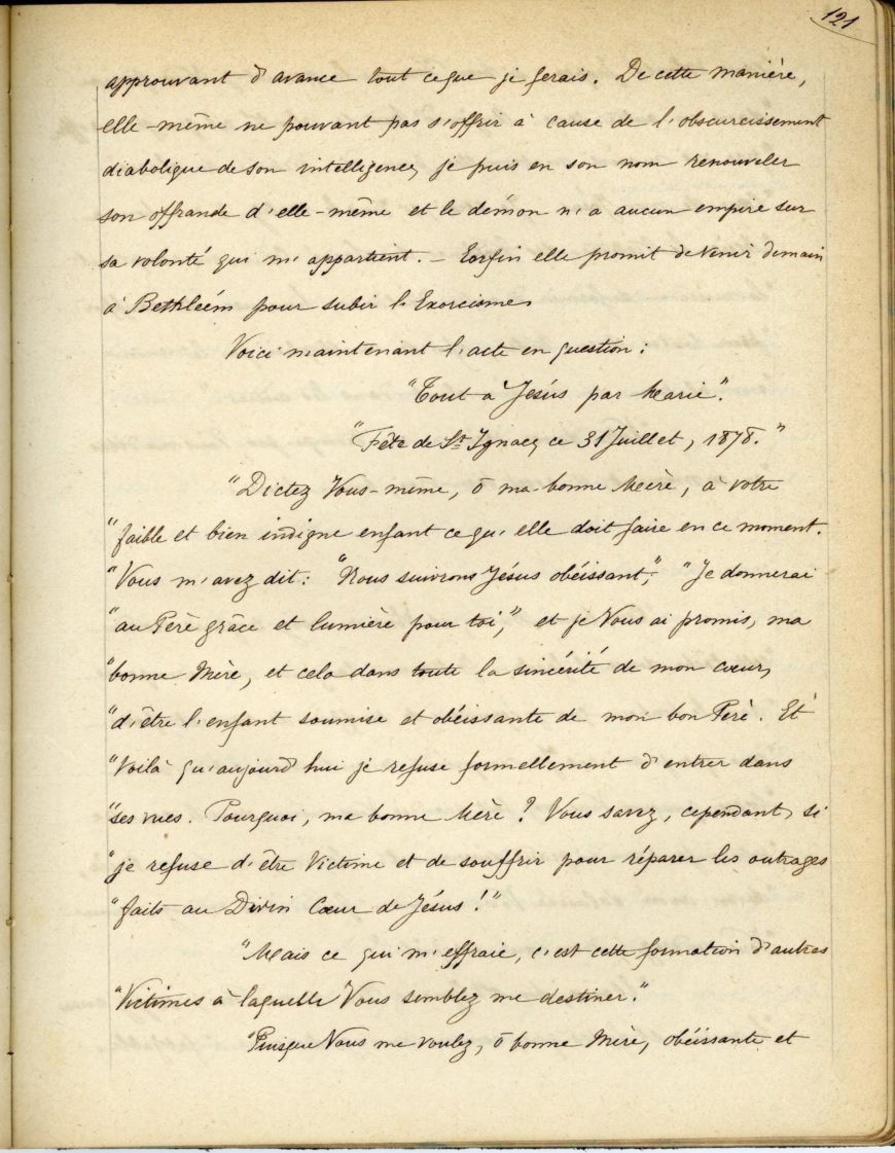 121
approuvant d'avance tout ce que je ferais. De cette manière,
elle-même ne pouvant pas s'offrir à cause de l'obscurcissement
diabolique de son intelligence, je puis en son nom renouveler
son offrande d'elle-même et le démon n'a aucun empire sur
sa volonté qui m'appartient. — Enfin elle promit de venir demain
à Bethléem pour subir l'Exorcisme.
Voici maintenant l'acte en question :
"Tout à Jésus par Marie".
"Fête de St Ignace, ce 31 Juillet, 1878."
"Dictez Vous-même, ô ma bonne Mère, à votre
"faible et bien indigne enfant ce qu'elle doit faire en ce moment.
"Vous m'avez dit : "Nous suivrons Jésus obéissant"; "Je donnerai
"au Père grâce et lumière pour toi," et je Vous ai promis, ma
"bonne Mère, et cela dans toute la sincérité de mon cœur,
"d'être l'enfant soumise et obéissante de mon bon Père. Et
"Voilà qu'aujourd'hui je refuse formellement d'entrer dans
"ses vues. Pourquoi, ma bonne Mère ? Vous savez, cependant, si
"je refuse d'être Victime et de souffrir pour réparer les outrages
"faits au Divin Cœur de Jésus !"
"Mais ce qui m'effraie, c'est cette formation d'autres
"Victimes à laquelle Vous semblez me destiner."
"Puisque Vous me voulez, ô bonne Mère, obéissante et